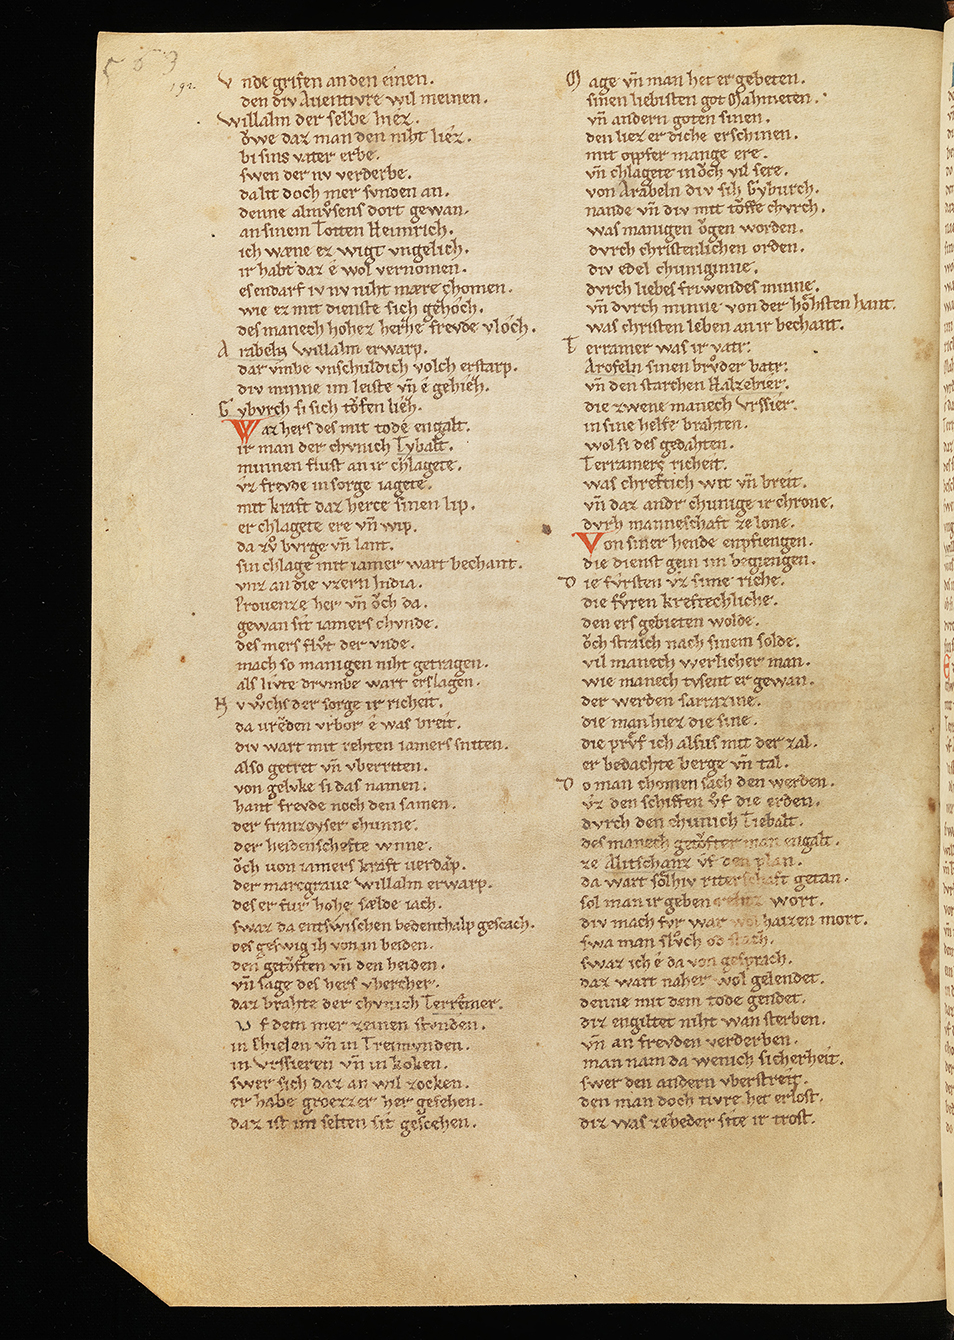 563
192.
Vnde grifen an den einen.
den div Auentivre wil meinen.
Willalm der selbe hiez.
ŏwe daz man den niht liez.
bi sins vater erbe.
swen der nv verderbe.
da lit doch mer svnden an.
denne almvͦsens dort gewan.
an sinem Totten Heinrich.
ich wæne ez wigt vngelich.
ir habt daz é wol vernomen.
es endarf iv nv niht mære chomen.
wie ez mit dienste sich gehoͮch.
des manech hohez herze frevde vloͮch.
Arabeln Willalm erwarp.
dar vmbe vnschuldich volch erstarp.
div minne im leiste vn̄ é gehieh.
Gyburch si sich toͮfen lieh.
Waz hers des mit tode engalt.
ir man der chvnich Tybalt.
minnen flust an ir chlagete.
vz frevde in sorge iagete.
mit kraft daz herce sinen lip.
er chlagete ere vn̄ wip.
da zvͦ bvrge vn̄ lant.
sin chlage mit iamer wart bechant.
vnz an die vzern India.
Prouenze her vn̄ oͮch da.
gewan sit iamers chvnde.
des mers flvͦt der vnde.
mach so manigen niht getragen.
als livte drvmbe wart erslagen.
Nv wͦchs der sorge ir richeit.
da vreͮden vrbor é was breit.
div wart mit rehten iamers sitten.
also getret vn̄ vberriten.
von gelvke si das namen.
hant frevde noch den samen.
der franzoyser chunne.
der heidenschefte wnne.
oͮch von iamers kraft verdarp.
der marcgraue Willalm erwarp.
des er fur hohe sælde iach.
swaz da entswischen bedenthalp gescach.
des geswig ih von in beiden.
den getoͮften vn̄ den heiden.
vn̄ sage des hers vbercher.
daz brahte der chvnich Terremer.
Vf dem mer zeinen stvnden.
in Chielen vn̄ in Treimvnden.
in Vrssieren vn̄ in koken.
swer sich daz an wil zocken.
er habe groezzer her gesehen.
daz ist im selten sit gescehen.
Mage vn̄ man het er gebeten.
sinen liebisten got Mahmeten.
vn̄ andern goten sinen.
den liez er diche erschinen.
mit oppfer mange ere.
vn̄ chlagete in oͮch vil sere.
von Arabeln div sih Gyburch.
nande vn̄ div mit toͮffe chvrch.
was manigen oͮgen worden.
dvrch christenlichen orden.
div edel chuniginne.
dvrch liebes friwendes minne.
vn̄ dvrch minne von der hoͤhsten hant.
was christen leben an ir bechant.
Terramer was ir vatr:
Arofeln sinen brvͦder batr:
vn̄ den starchen Halzebier.
die zwene manech Vrssier.
in sine helfe brahten.
wol si des gedahten.
Terramers richeit.
was chreftich wit vn̄ breit.
vn̄ daz andr chunige ir chrone.
dvrh manneschaft ze lone.
Von siner hende enpfiengen.
die dienst gein im begiengen.
Die fvrsten vz sime riche.
die fvͦren kreftechliche.
den ers gebieten wolde.
oͮch straich nach sinem solde.
vil manech werlicher man.
wie manech tvsent er gewan.
der werden sarrazine.
die man hiez die sine.
die prvͤf ich alsus mit der zal.
er bedachte berge vn̄ tal.
Do man chomen sach den werden.
vz den schiffen vf die erden.
dvrch den chunich Tiebalt.
des manech getoͮfter man engalt.
ze Alitschanz vf den plan.
da wart soͤlhiv riterschaft getan.
sol man ir geben rehtz wort.
div mach fvr war wol haizen mort.
swa man slvͦch od stach.
swaz ich é da von gesprach.
daz wart naher wol gelendet.
denne mit dem tode gendet.
diz engiltet niht wan sterben.
vn̄ an frevden verderben.
man nam da wenich sicherheit.
swer den andern vberstreit.
den man doch tivre het erlost.
diz was ze beder site ir trost.